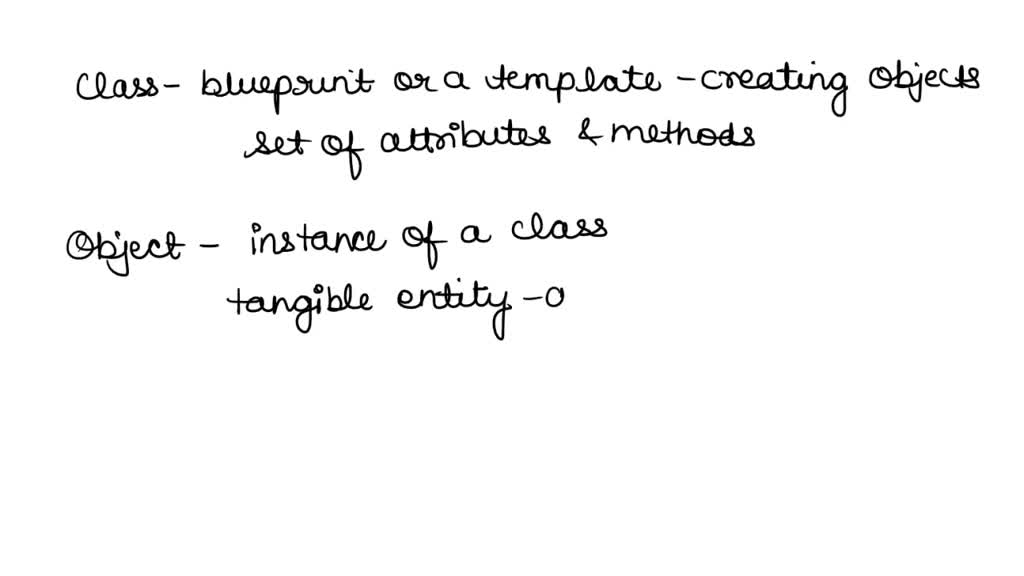 class- blueprint or a template - creating Objects
set of attributes & methods
Object - instance of a class
tangible entity - a